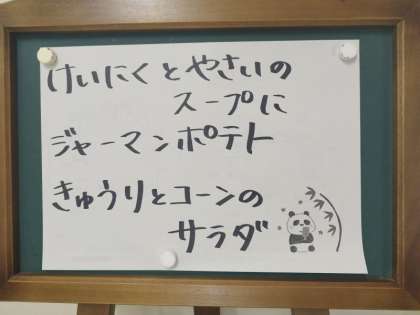 けいにくとやさいの
スープに
ジャーマンポテト
きゅうりとコーンの
サラダ